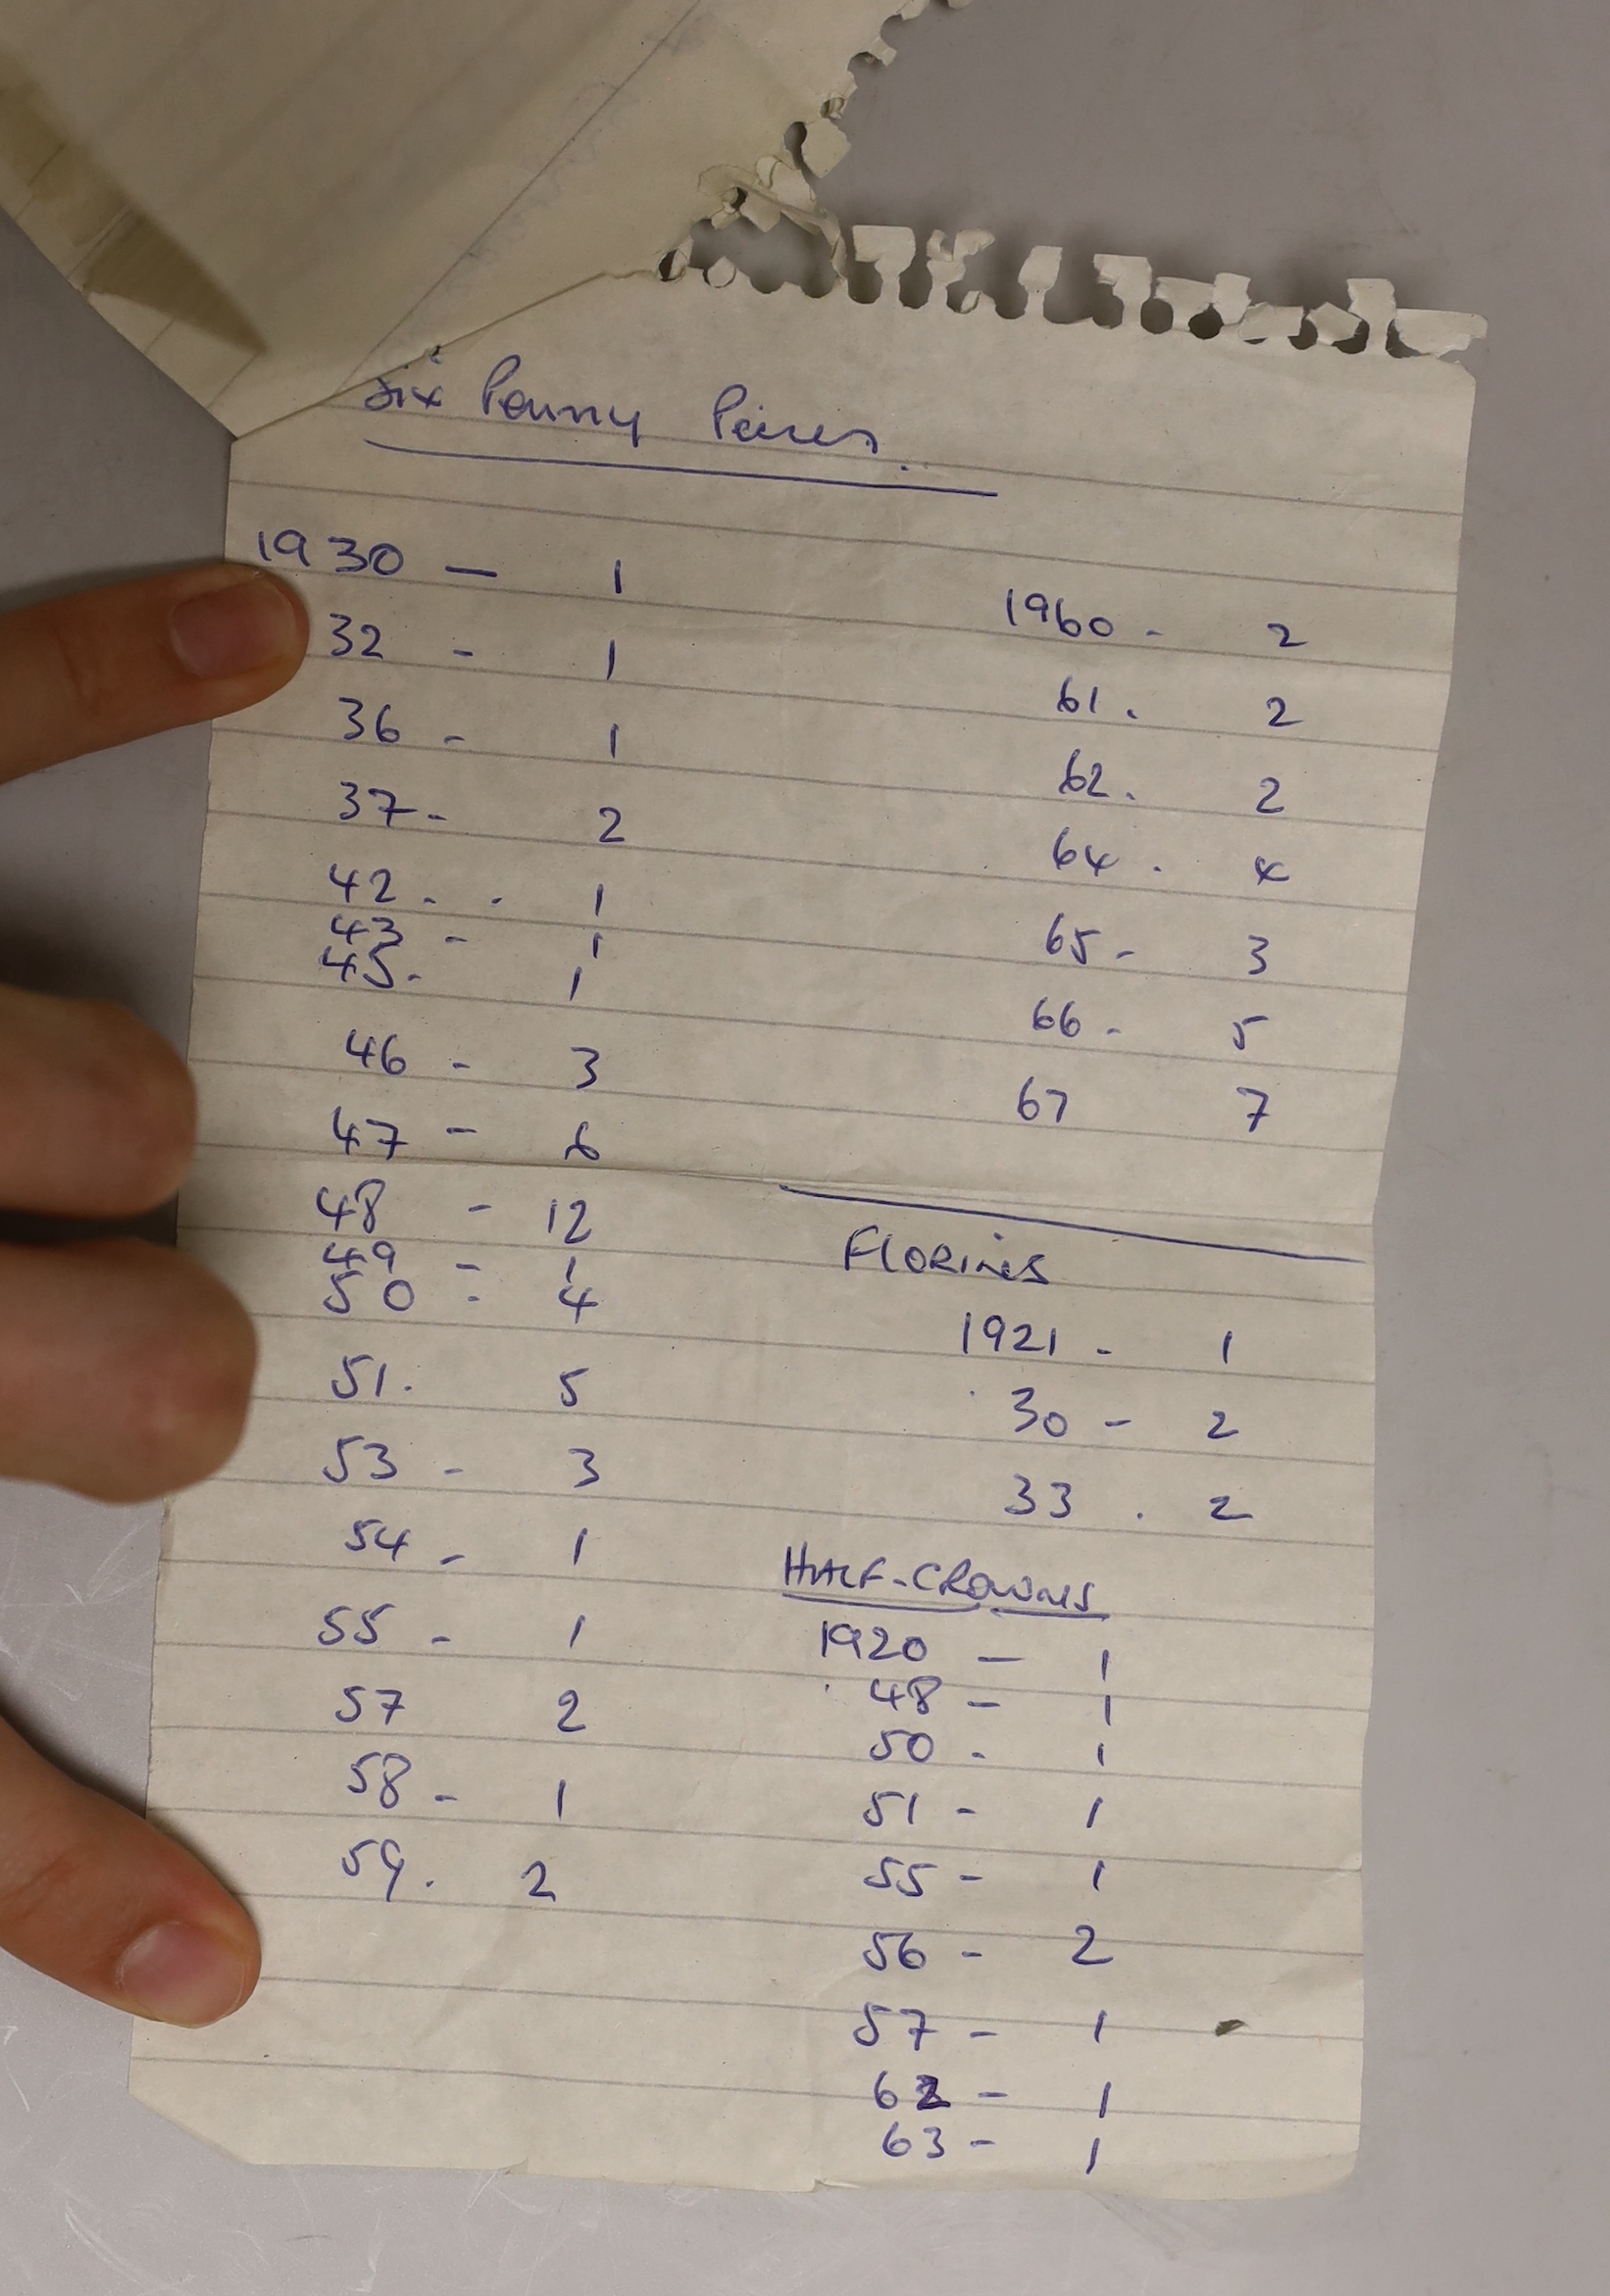 Six Penny Pieces.
1930 — 1
32 - 1
36 - 1
37 - 2
42 . . 1
43 - 1
45. 1
46 - 3
47 - 6
48 - 12
49 - 1
50 - 4
51. 5
53 - 3
54 - 1
55 - 1
57 2
58 - 1
59. 2
1960 - 2
61. 2
62. 2
64. 4
65 - 3
66 - 5
67 7
FLORINS
1921 - 1
30 - 2
33 . 2
HALF-CROWNS
1920 — 1
48 - 1
50 - 1
51 - 1
55 - 1
56 - 2
57 - 1
62 - 1
63 - 1